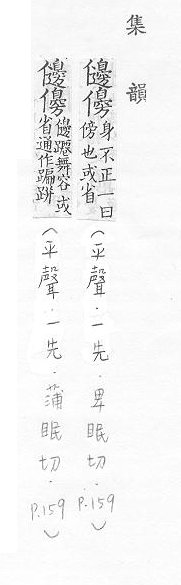 集韻
邊傍身不正一曰傍也或省（平聲．一先．卑眠切．P.159）
邊傍邊蹮舞容或省通作蹁跰（平聲．一先．蒲眠切．P.159）